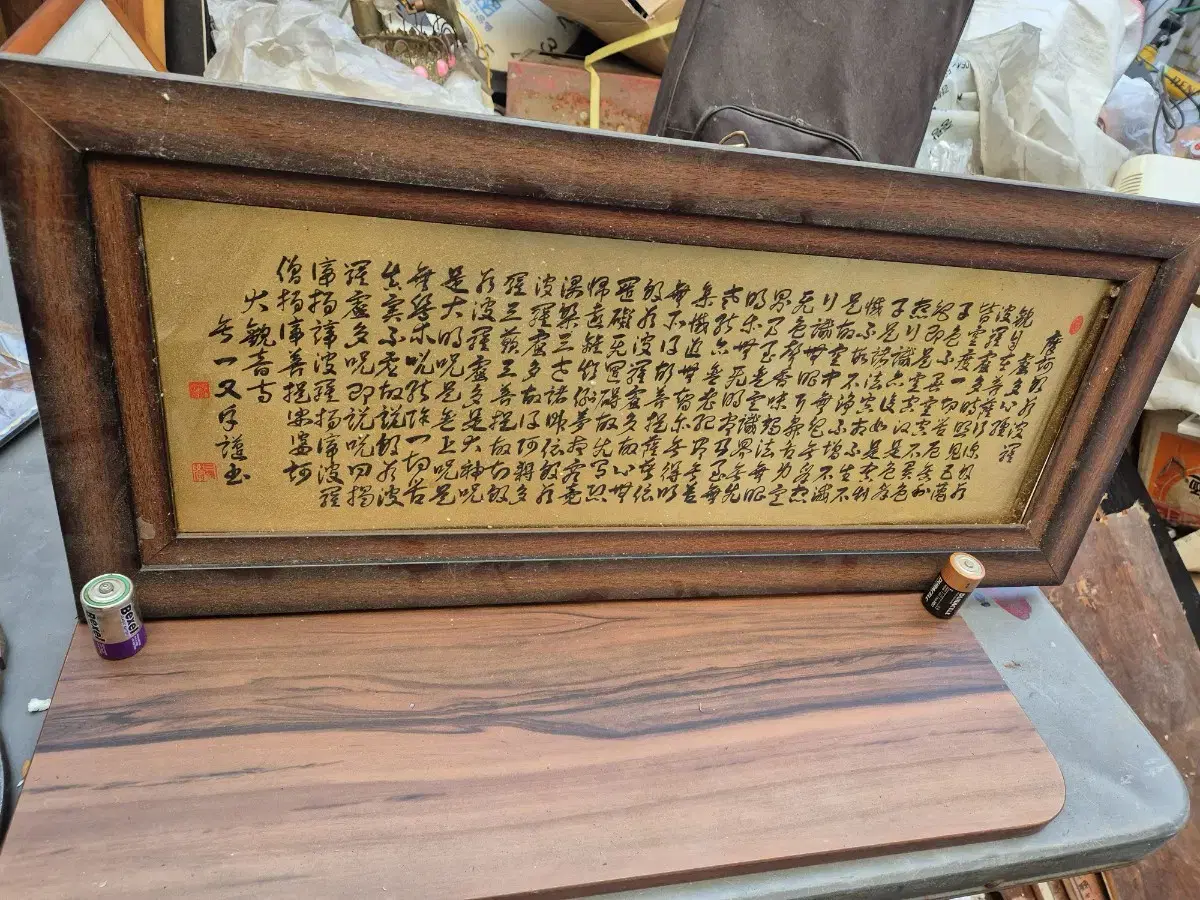 摩訶般若波羅蜜
觀自在菩薩行深般若
波羅蜜多時照見五蘊
皆空度一切苦厄舍利
子色不異空空不異色
色卽是空空卽是色受
想行識亦復如是舍利
子是諸法空相不生不
滅不垢不淨不增不減
是故空中無色無受想
行識無眼耳鼻舌身意
無色聲香味觸法無眼
界乃至無意識界無無
明亦無無明盡乃至無
老死亦無老死盡無苦
集滅道無智亦無得以
無所得故菩提薩埵依
般若波羅蜜多故心無
罣礙無罣礙故無有恐
怖遠離顚倒夢想究竟
涅槃三世諸佛依般若
波羅蜜多故得阿耨多
羅三藐三菩提故知般
若波羅蜜多是大神呪
是大明呪是無上呪是
無等等呪能除一切苦
眞實不虛故說般若波
羅蜜多呪卽說呪曰揭
諦揭諦波羅揭諦波羅
僧揭諦菩提娑婆訶
觀音寺
一又 謹書
Bexel
Bexel